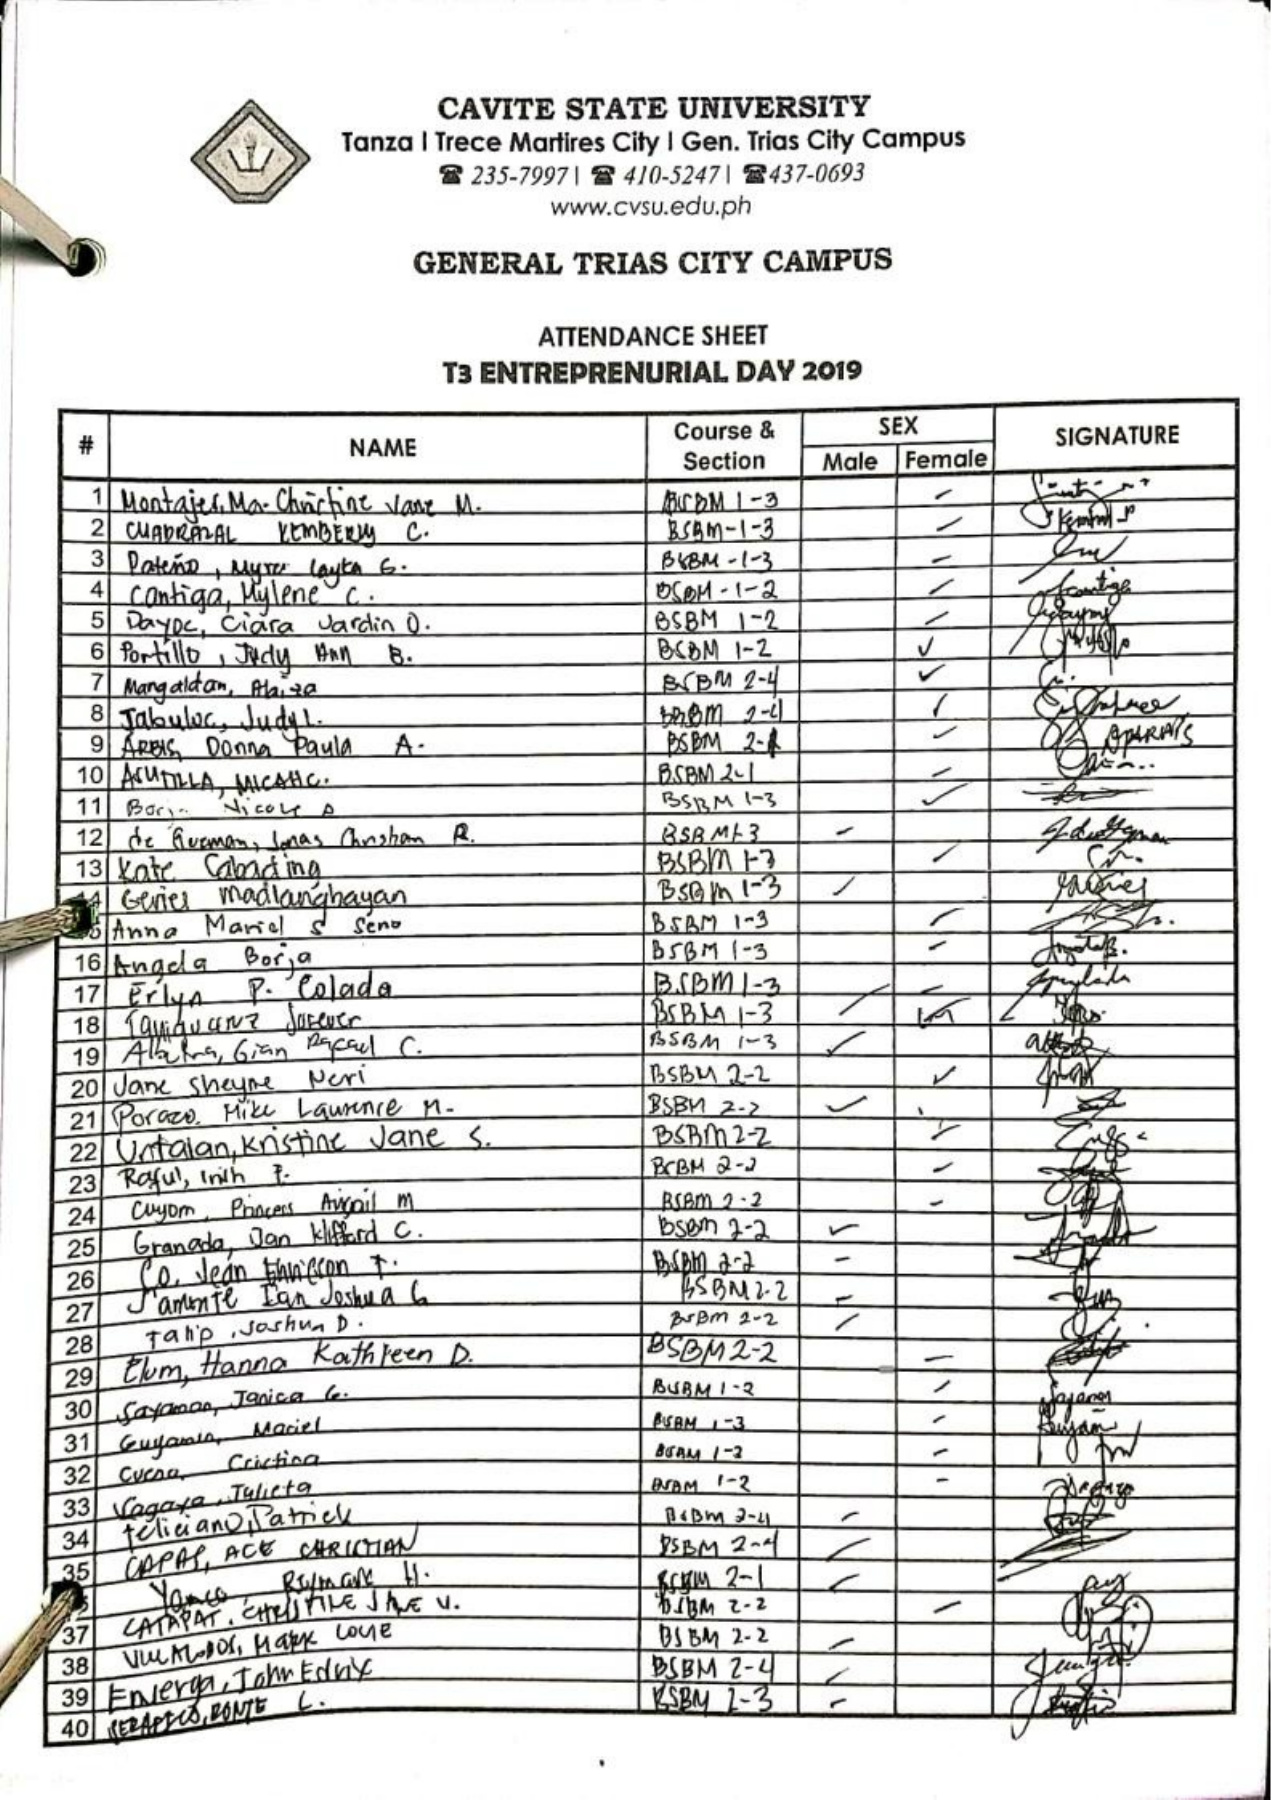 CAVITE STATE UNIVERSITY
Tanza | Trece Martires City | Gen. Trias City Campus
☎ 235-7997 | ☎ 410-5247 | ☎ 437-0693
www.cvsu.edu.ph
GENERAL TRIAS CITY CAMPUS
ATTENDANCE SHEET
T3 ENTREPRENURIAL DAY 2019
# NAME Course & Section SEX Male Female SIGNATURE
1 Montajes, Ma. Christine Jane M. BSBM 1-3
2 CUADRAZAL KEMBERLY C. BSBM-1-3
3 Pateño, Layka G. BSBM-1-3
4 Cantiga, Mylene C. BSBM-1-2
5 Dayoc, Ciara Jardin O. BSBM 1-2
6 Portillo, Judy Ann B. BSBM 1-2
7 Mangaldan, Alaiza BSBM 2-4
8 Tabuloc, Judy L. BSBM 2-4
9 ARBIS, Donna Paula A. BSBM 2-1
10 ASUTILLA, MICAH C. BSBM 2-1
11 Borja Nicole BSBM 1-3
12 de Guzman, Jonas Christian R. BSBM 1-3
13 Kate Cabading BSBM 1-3
14 Genies Madlangbayan BSBM 1-3
Anna Mariel S Seno BSBM 1-3
16 Angela Borja BSBM 1-3
17 Erlyn P. Colada BSBM 1-3
18 BSBM 1-3
19 Gian Rafael C. BSBM 1-3
20 Jane Sheyne Neri BSBM 2-2
21 Porazo, Mike Laurence M. BSBM 2-2
22 Untalan, Kristine Jane S. BSBM 2-2
23 Raful, F. BSBM 2-2
24 Cuyom, Princess Avigail M BSBM 2-2
25 Granado, Jan Kliffard C. BSBM 2-2
26 Co, Jean T. BSBM 2-2
27 Samonte Ian Joshua G BSBM 2-2
28 Talip, Joshua D. BSBM 2-2
29 Elum, Hanna Kathleen D. BSBM 2-2
30 Sayaman, Janica G. BSBM 1-2
31 Guyamin, Mariel BSBM 1-3
32 Cuena, Cristina BSBM 1-2
33 Vagaya, Julieta BSBM 1-2
34 Feliciano, Patrick BSBM 2-4
35 CAPAS, ACE CHRISTIAN BSBM 2-4
Yanco Rymark H. BSBM 2-1
37 CATAPAT, CHRISTINE JANE V. BSBM 2-2
38 VILLALOBOS, MARK LOUIE BSBM 2-2
39 Enverga, John Edrix BSBM 2-4
40 SERAPICO, RONTE L. BSBM 2-3